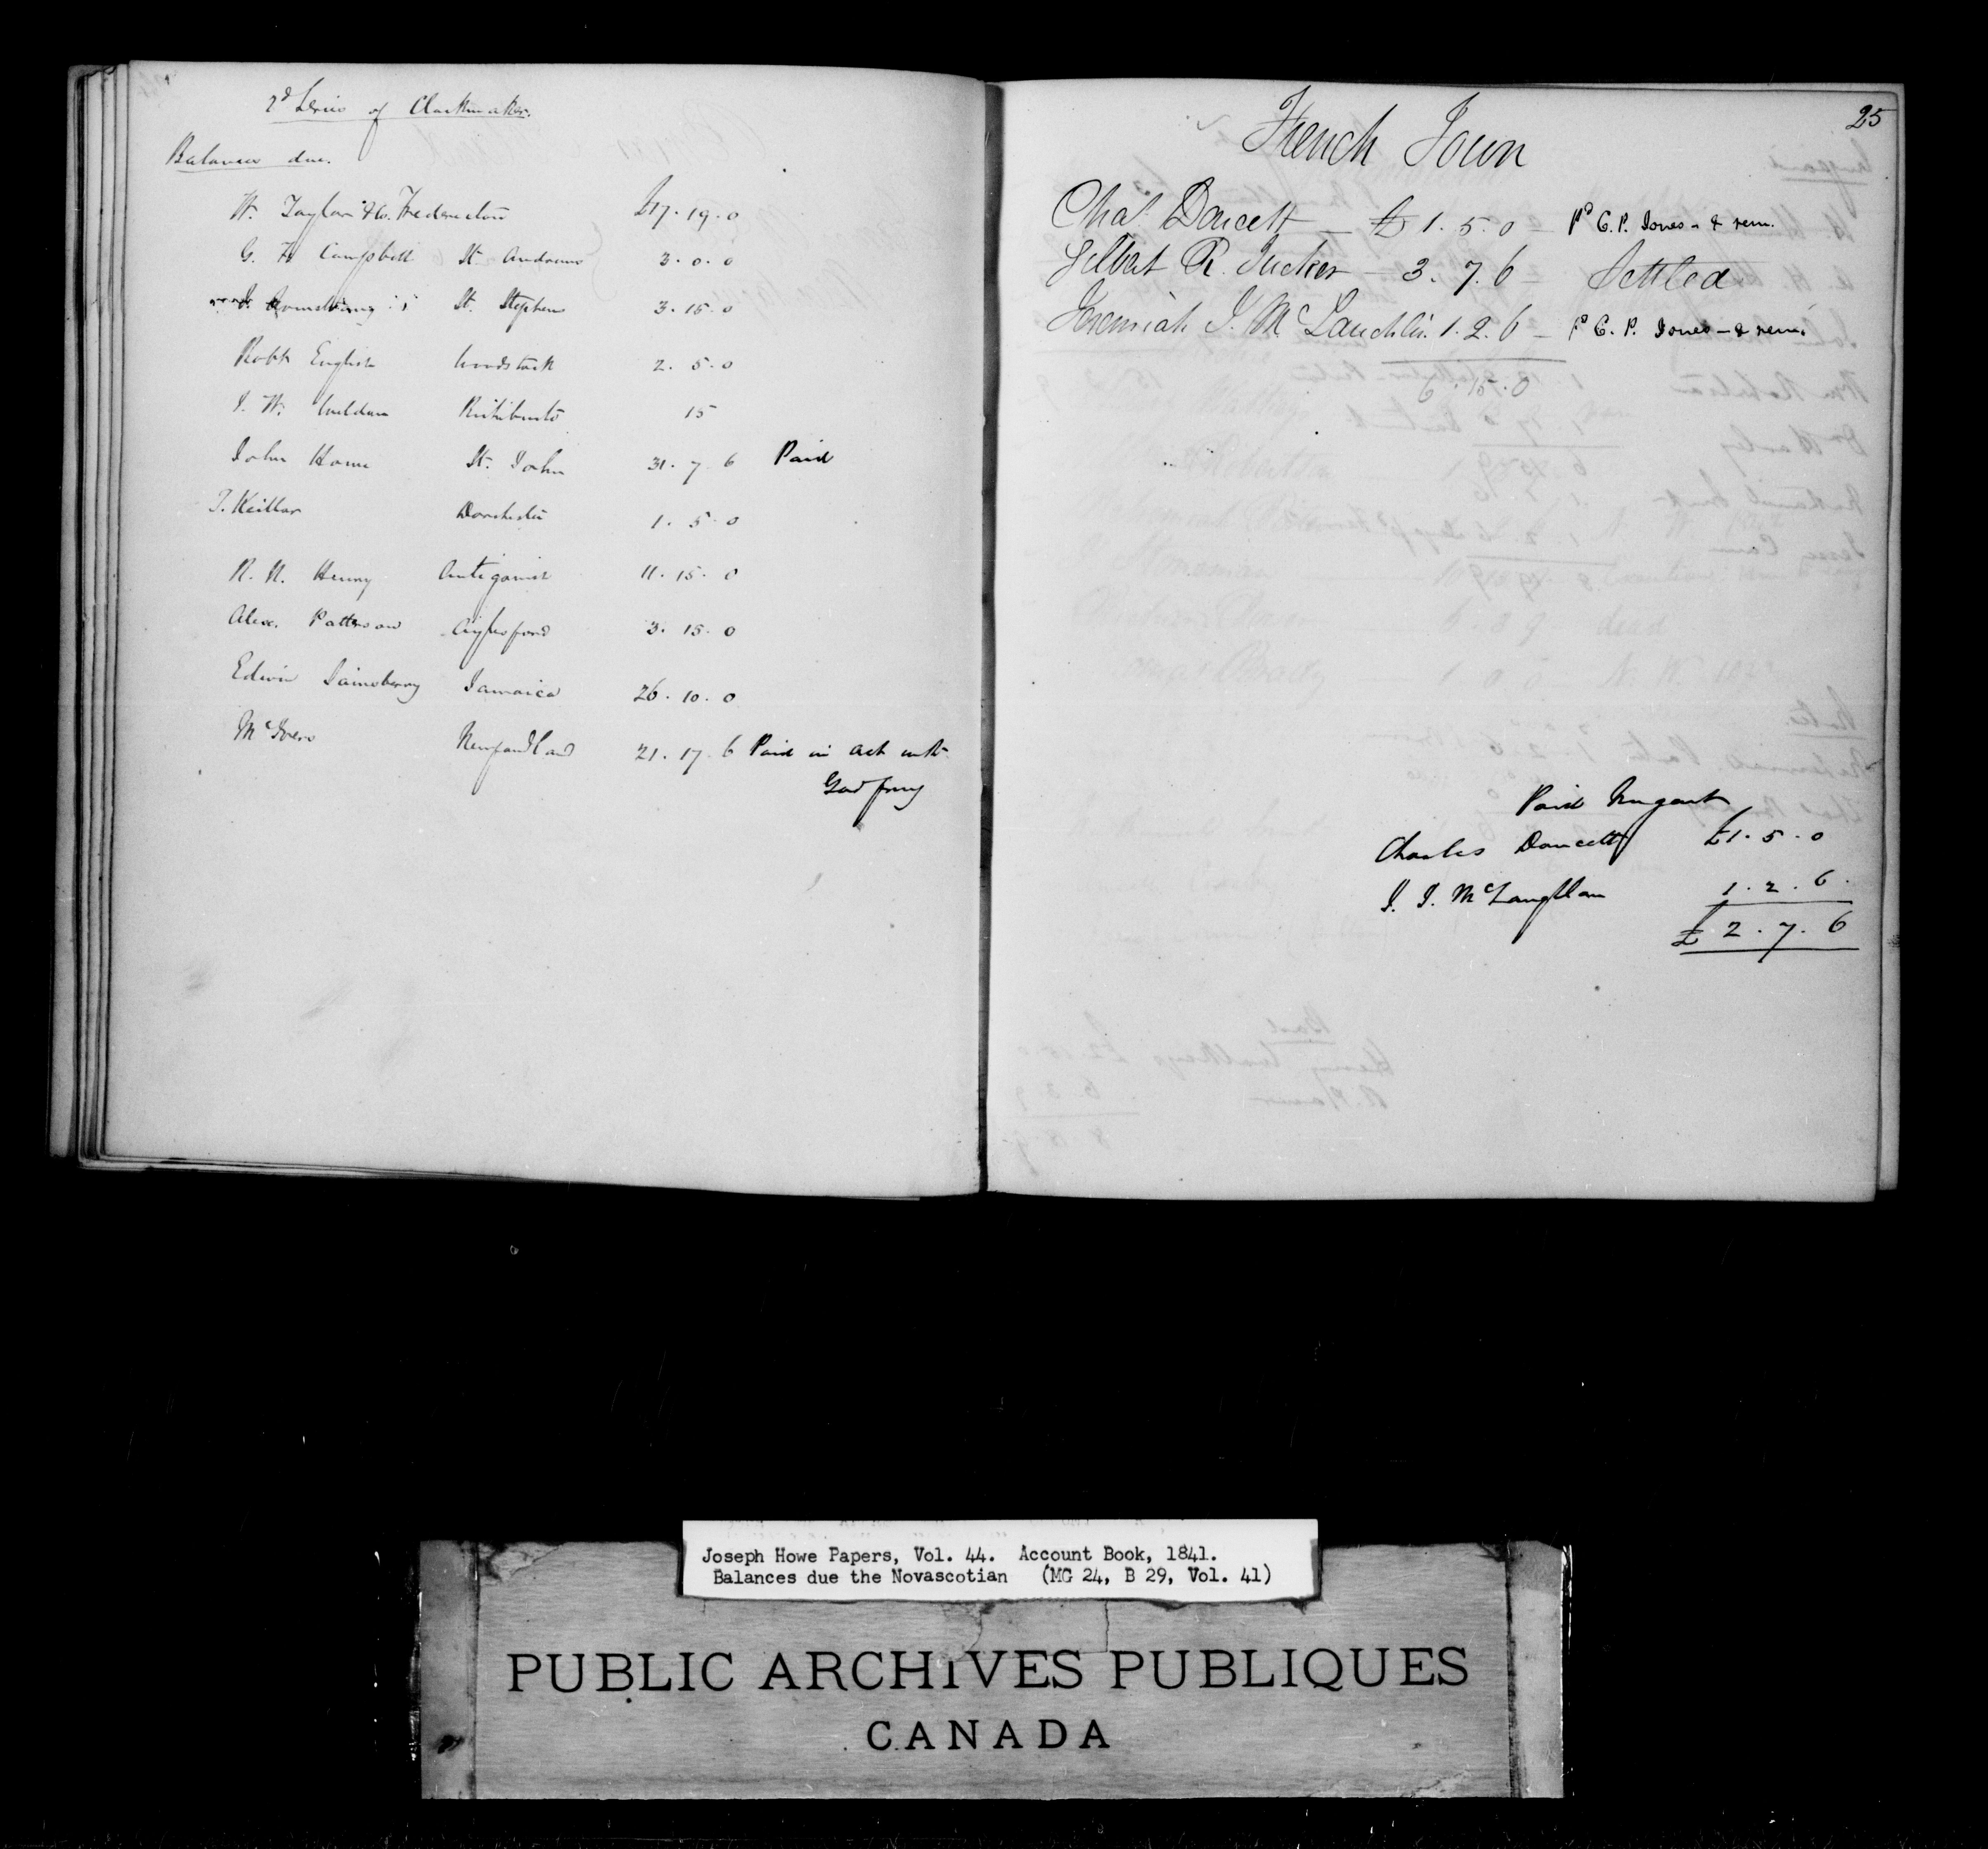 2d Series of Clockmaker.
Balances due.
W. Taylor & Co. Fredericton £17. 19. 0
G. F. Campbell St. Andrews 3. 0. 0
Armstrong St. Stephens 3. 15. 0
Robt English Woodstock 2. 5. 0
J. W. Weldon Richibucto 15
John Howe St. John 31. 7. 6 Paid
T. Keillor Dorchester 1. 5. 0
R. N. Henry Antigonish 11. 15. 0
Alex. Patterson Aylesford 3. 15. 0
Edwin Sainsberry Jamaica 26. 10. 0
McIvers Newfoundland 21. 17. 6 Paid in act with
Godfrey
25
French Town
Chas. Doucett — £ 1. 5. 0 — pd C. P. Jones — & rem.
Gilbert R. Tucker — 3. 7. 6 — Settled
Jeremiah J. McLauchlin. 1. 2. 6 — pd C. P. Jones — & rem.
6. 15. 0
Paid Nugent
Charles Doucett £1. 5. 0
J. J. McLaughlan 1. 2. 6.
£ 2. 7. 6
Joseph Howe Papers, Vol. 44. Account Book, 1841.
Balances due the Novascotian (MG 24, B 29, Vol. 41)
PUBLIC ARCHIVES PUBLIQUES
CANADA